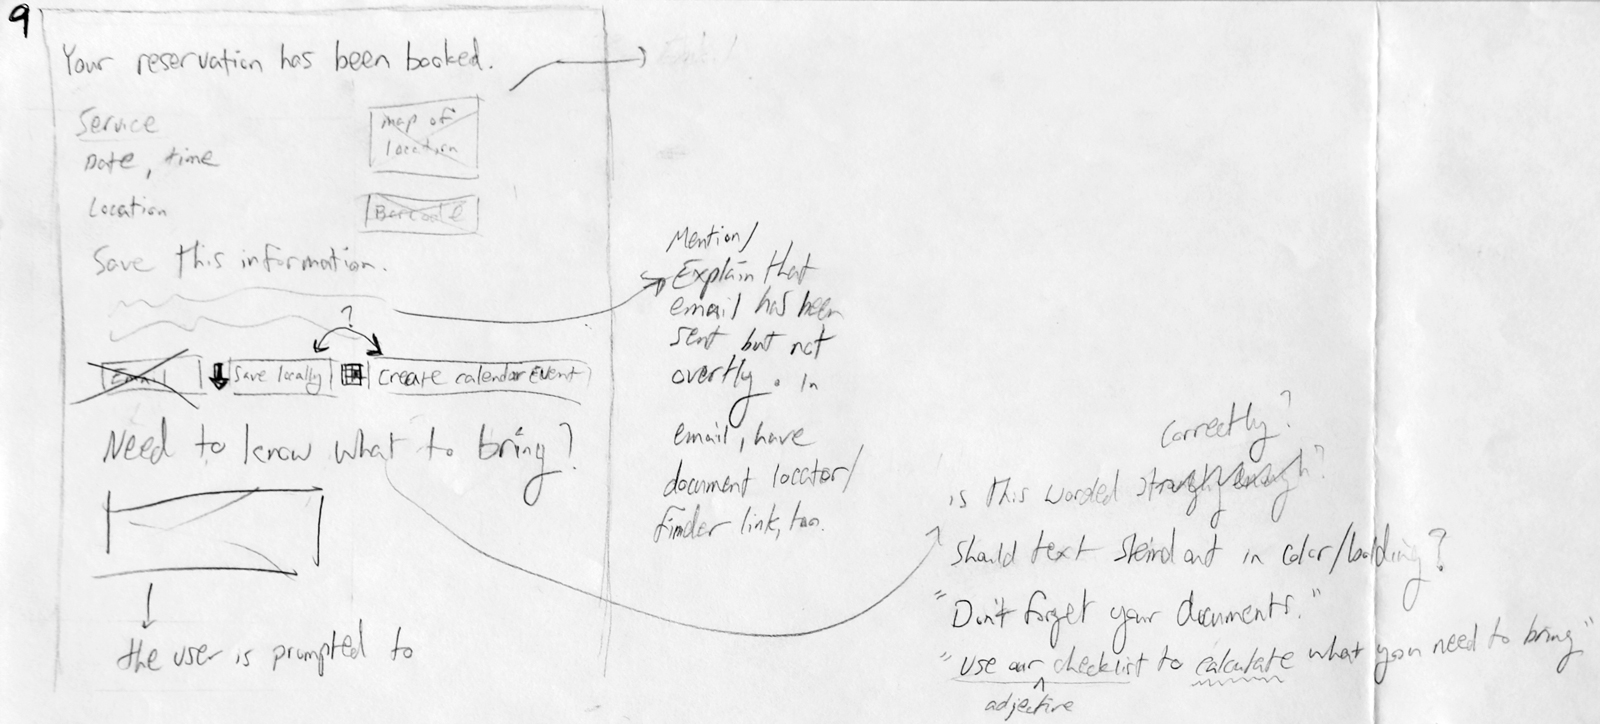 9
Your reservation has been booked.
Service
Date, time
Location
map of
location
Barcode
Save this information.
?
Email
Save locally
Create calendar Event
Need to know what to bring?
the user is prompted to
Mention/
Explain that
email has been
sent but not
overtly. in
email, have
document locator/
finder link, too.
Correctly?
is this worded strongly enough?
Should text stand out in color/bolding?
"Don't forget your documents."
"Use our checklist to calculate what you need to bring"
adjective